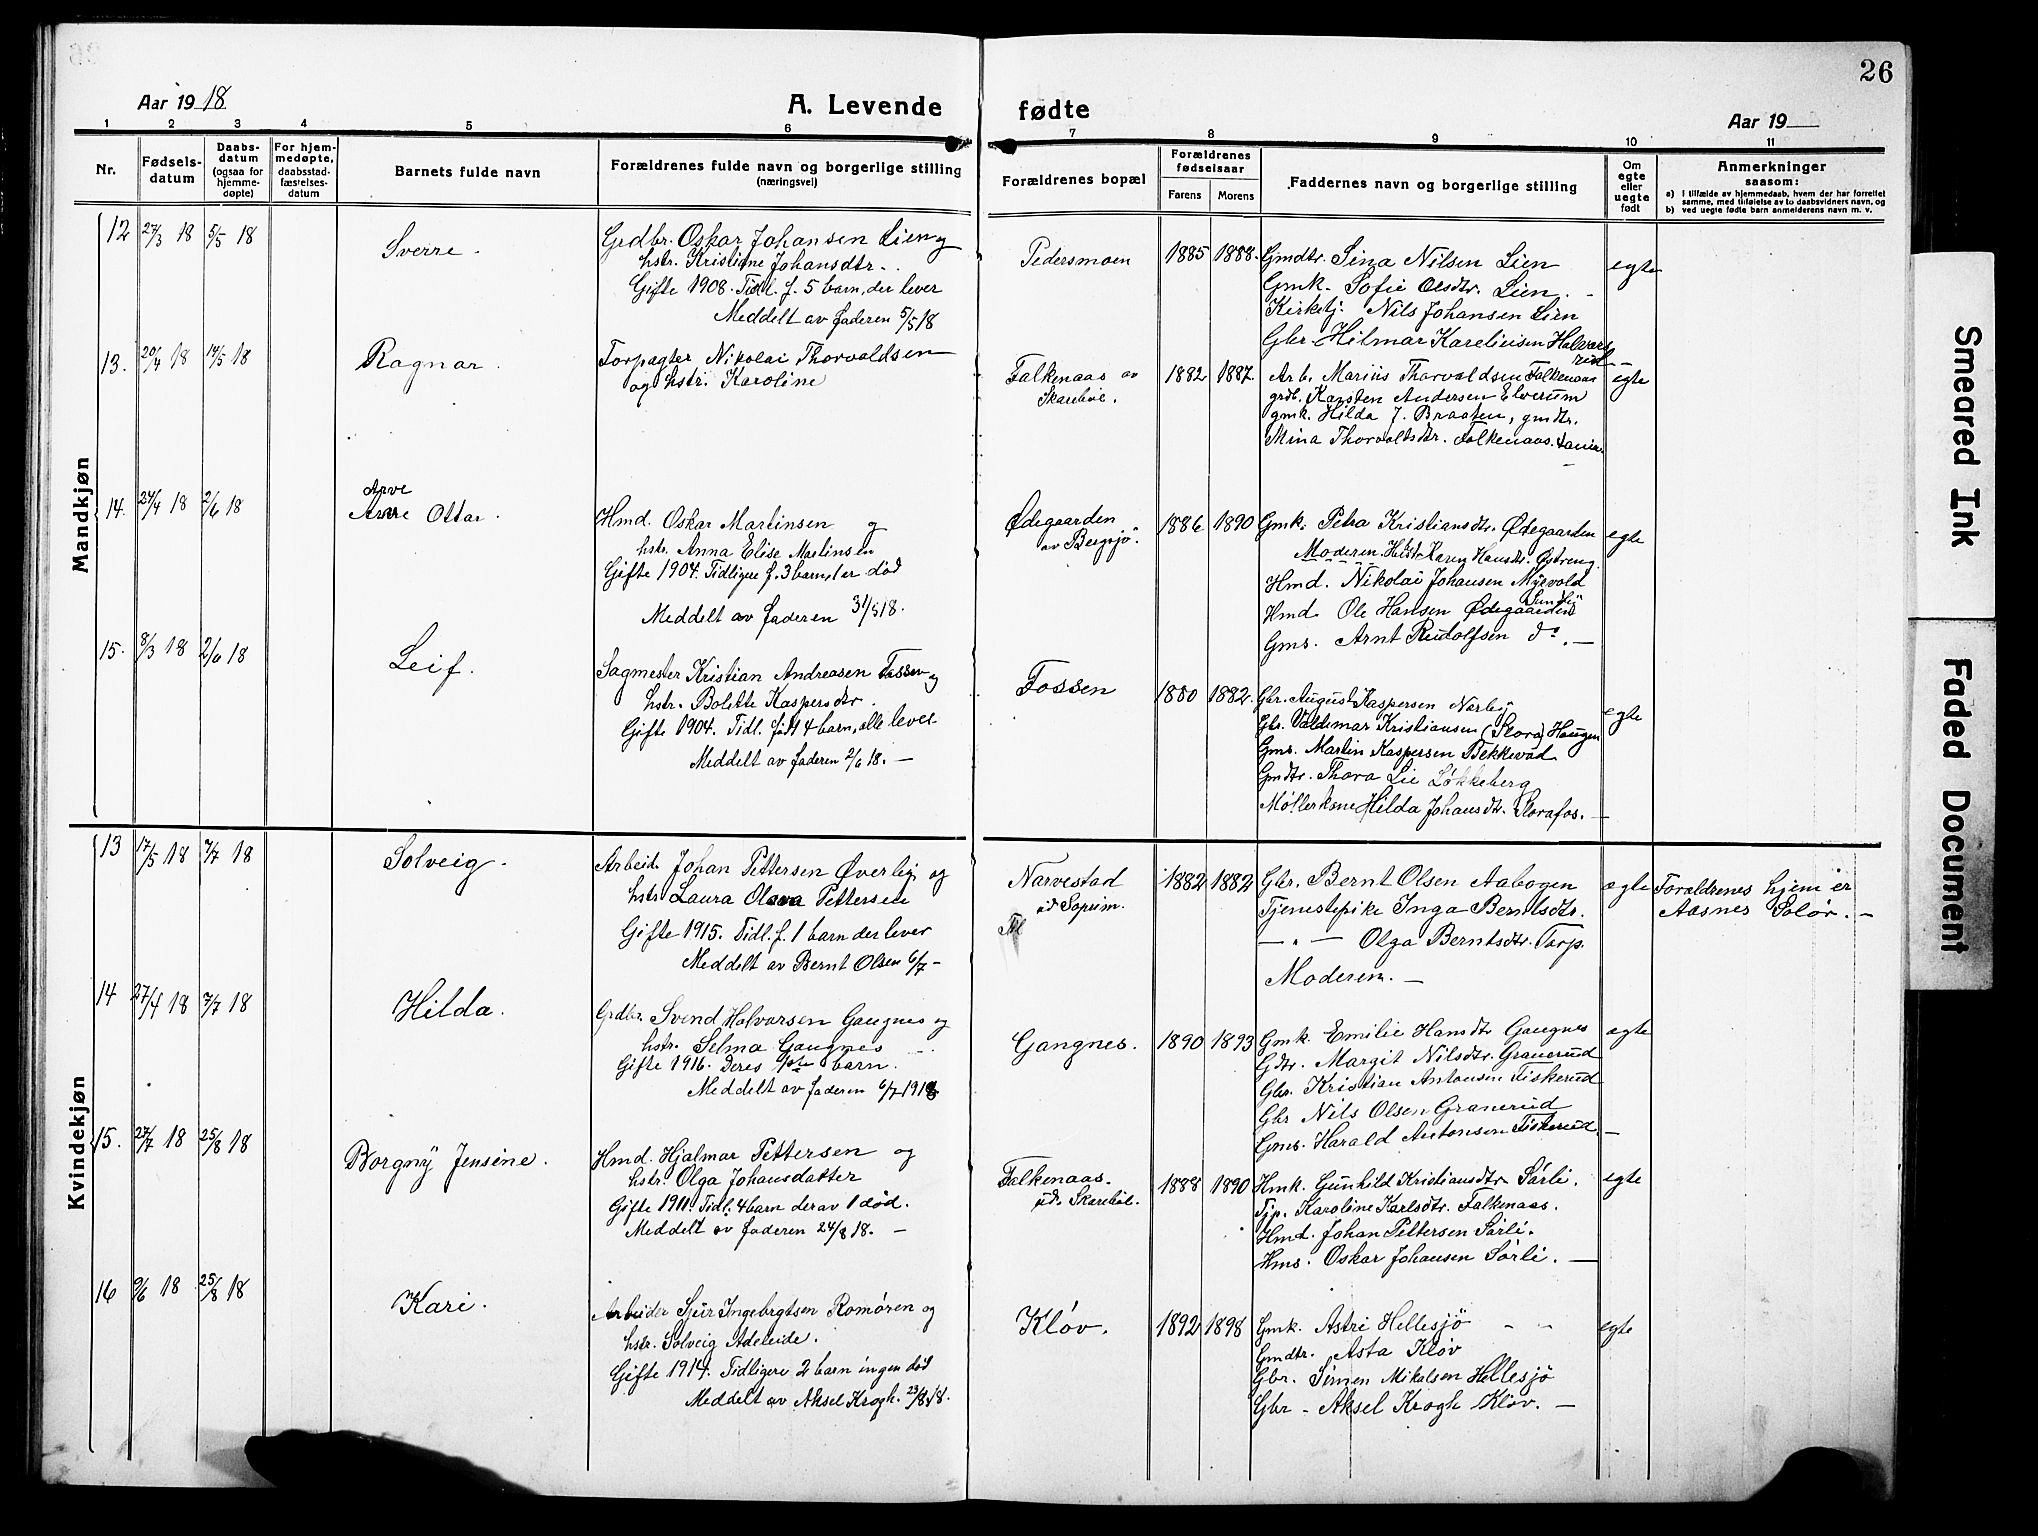 26
Aar 1918
A. Levende
fødte
Aar 19
1 2 3 4 5 6 7 8 9 10 11
Nr.
Fødselsdatum
Daabsdatum (ogsaa for hjemmedøpte)
For hjemmedøpte, daabsstadfæstelsesdatum
Barnets fulde navn
Forældrenes fulde navn og borgerlige stilling (næringsvei)
Forældrenes bopæl
Forældrenes fødselsaar
Farens Morens
Faddernes navn og borgerlige stilling
Om egte eller uegte født
Anmerkninger saasom:
a) I tilfælde av hjemmedaab, hvem der har forrettet samme, med tilføielse av to daabsvidners navn, og
b) ved uegte fødte barn anmelderens navn m. v.
Mandkjøn
12 27/3 18 5/5 18
Sverre.
Grdbr. Oskar Johansen Lien og
hstr. Kristine Johansdtr.
Gifte 1908. Tidl. f. 5 barn, der lever
Meddelt av faderen 5/5 18
Pedersmoen
1885 1888.
Gmdtr. Sina Nilsen Lien
Gmk. Sofie Olsdtr. Lien.
Kirketj. Nils Johansen Lien
Gbr. Hilmar Kareliusen Halvorsrud
egte
13. 20/4 18 14/5 18
Ragnar.
Forpagter Nikolai Thorvaldsen
og hstr. Karoline
Falkenaas av
Skarebøl.
1882 1887.
Arb. Marius Thorvaldsen Falkenaas
grdb. Karsten Andersen Elverum
gmk. Hilda J. Braaten, gmdtr.
Mina Thorvaltsdtr. Falkenaas.
egte
14. 24/4 18 2/6 18
Arve
Arve Ottar.
Hmd. Oskar Martinsen og
hstr. Anna Elise Martinsen
Gifte 1904. Tidligere f. 3 barn, 1 er død
Meddelt av faderen 31/5 18.
Ødegaarden
av Bergsjø.
1886 1890
Gmk. Petra Kristiansdtr. Ødegaarden
Moderen. Hstr. Karen Hansdtr. Østreng.
Hmd. Nikolai Johansen Myrvold
Hmd. Ole Hansen Ødegaarden
Gms. Arnt Rudolfsen do. —
egte
15. 8/3 18 2/6 18
Leif.
Sagmester Kristian Andreasen Fossen og
hstr. Bolette Kaspersdtr.
Gifte 1904. Tidl. født 4 barn, alle lever
Meddelt av faderen 2/6 18. —
Fossen
1880 1882.
Gbr. August Kaspersen Narbø
Gbr. Valdemar Kristiansen (Stora) Haugen
Gms. Martin Kaspersen Bekkevad
Gmdtr. Thora Lie Løkkeberg
Møllerkone Hilda Johansdtr. Storafos. —
egte
Kvindekjøn
13 17/5 18 7/7 18
Solveig.
Arbeid. Johan Pettersen Øverlig og
hstr. Laura Olava Pettersen
Gifte 1915. Tidl. f. 1 barn der lever
Meddelt av Bernt Olsen 6/7 —
Narvestad
1882 1882
Gbr. Bernt Olsen Aabogen
Tjenestepike Inga Berntsdtr.
— " — Olga Berntsdtr. Torp.
Moderen. —
egte
Forældrenes hjem er
Aasnes Solør. —
14 27/4 18 7/7 18
Hilda.
Grdbr. Svend Halvorsen Gangnes og
hstr. Selma Gangnes
Gifte 1916. Deres 1ste barn.
Meddelt av faderen 6/7 1918
Gangnes.
1890 1893
Gmk. Emilie Hansdtr Gangnes
Gdtr. Margit Nilsdtr. Granerud
Gbr. Kristian Antonsen Fiskerud
Gbr Nils Olsen Granerud
Gms. Harald Antonsen Fiskerud. —
egte
15. 27/7 18 25/8 18
Borgny Jensine.
Hmd. Hjalmar Pettersen og
hstr. Olga Johansdatter
Gifte 1911. Tidl. 4 barn derav 1 død.
Meddelt av faderen 24/8 18. —
Falkenaas.
u. Skarebøl.
1888 1890
Hmk. Gunhild Kristiansdtr Sørli.
Tjp. Karoline Karlsdtr. Falkenaas.
Hmd. Johan Pettersen Sørli.
Hms. Oskar Johansen Sørli. —
egte
16 9/6 18 25/8 18
Kari.
Arbeider Sjur Ingebrgtsen Romøren og
hstr. Solveig Adeleide.
Gifte 1914. Tidligere 2 barn ingen død
Meddelt av Aksel Krogh. 23/8 18.
Kløv.
1892 1898
Gmk. Astri Hellesjø
Gmdtr. Asta Kløv
Gbr. Simen Mikelsen Hellesjø
Gbr - Aksel Krogh Kløv. —
egte
Smeared Ink
Faded Document